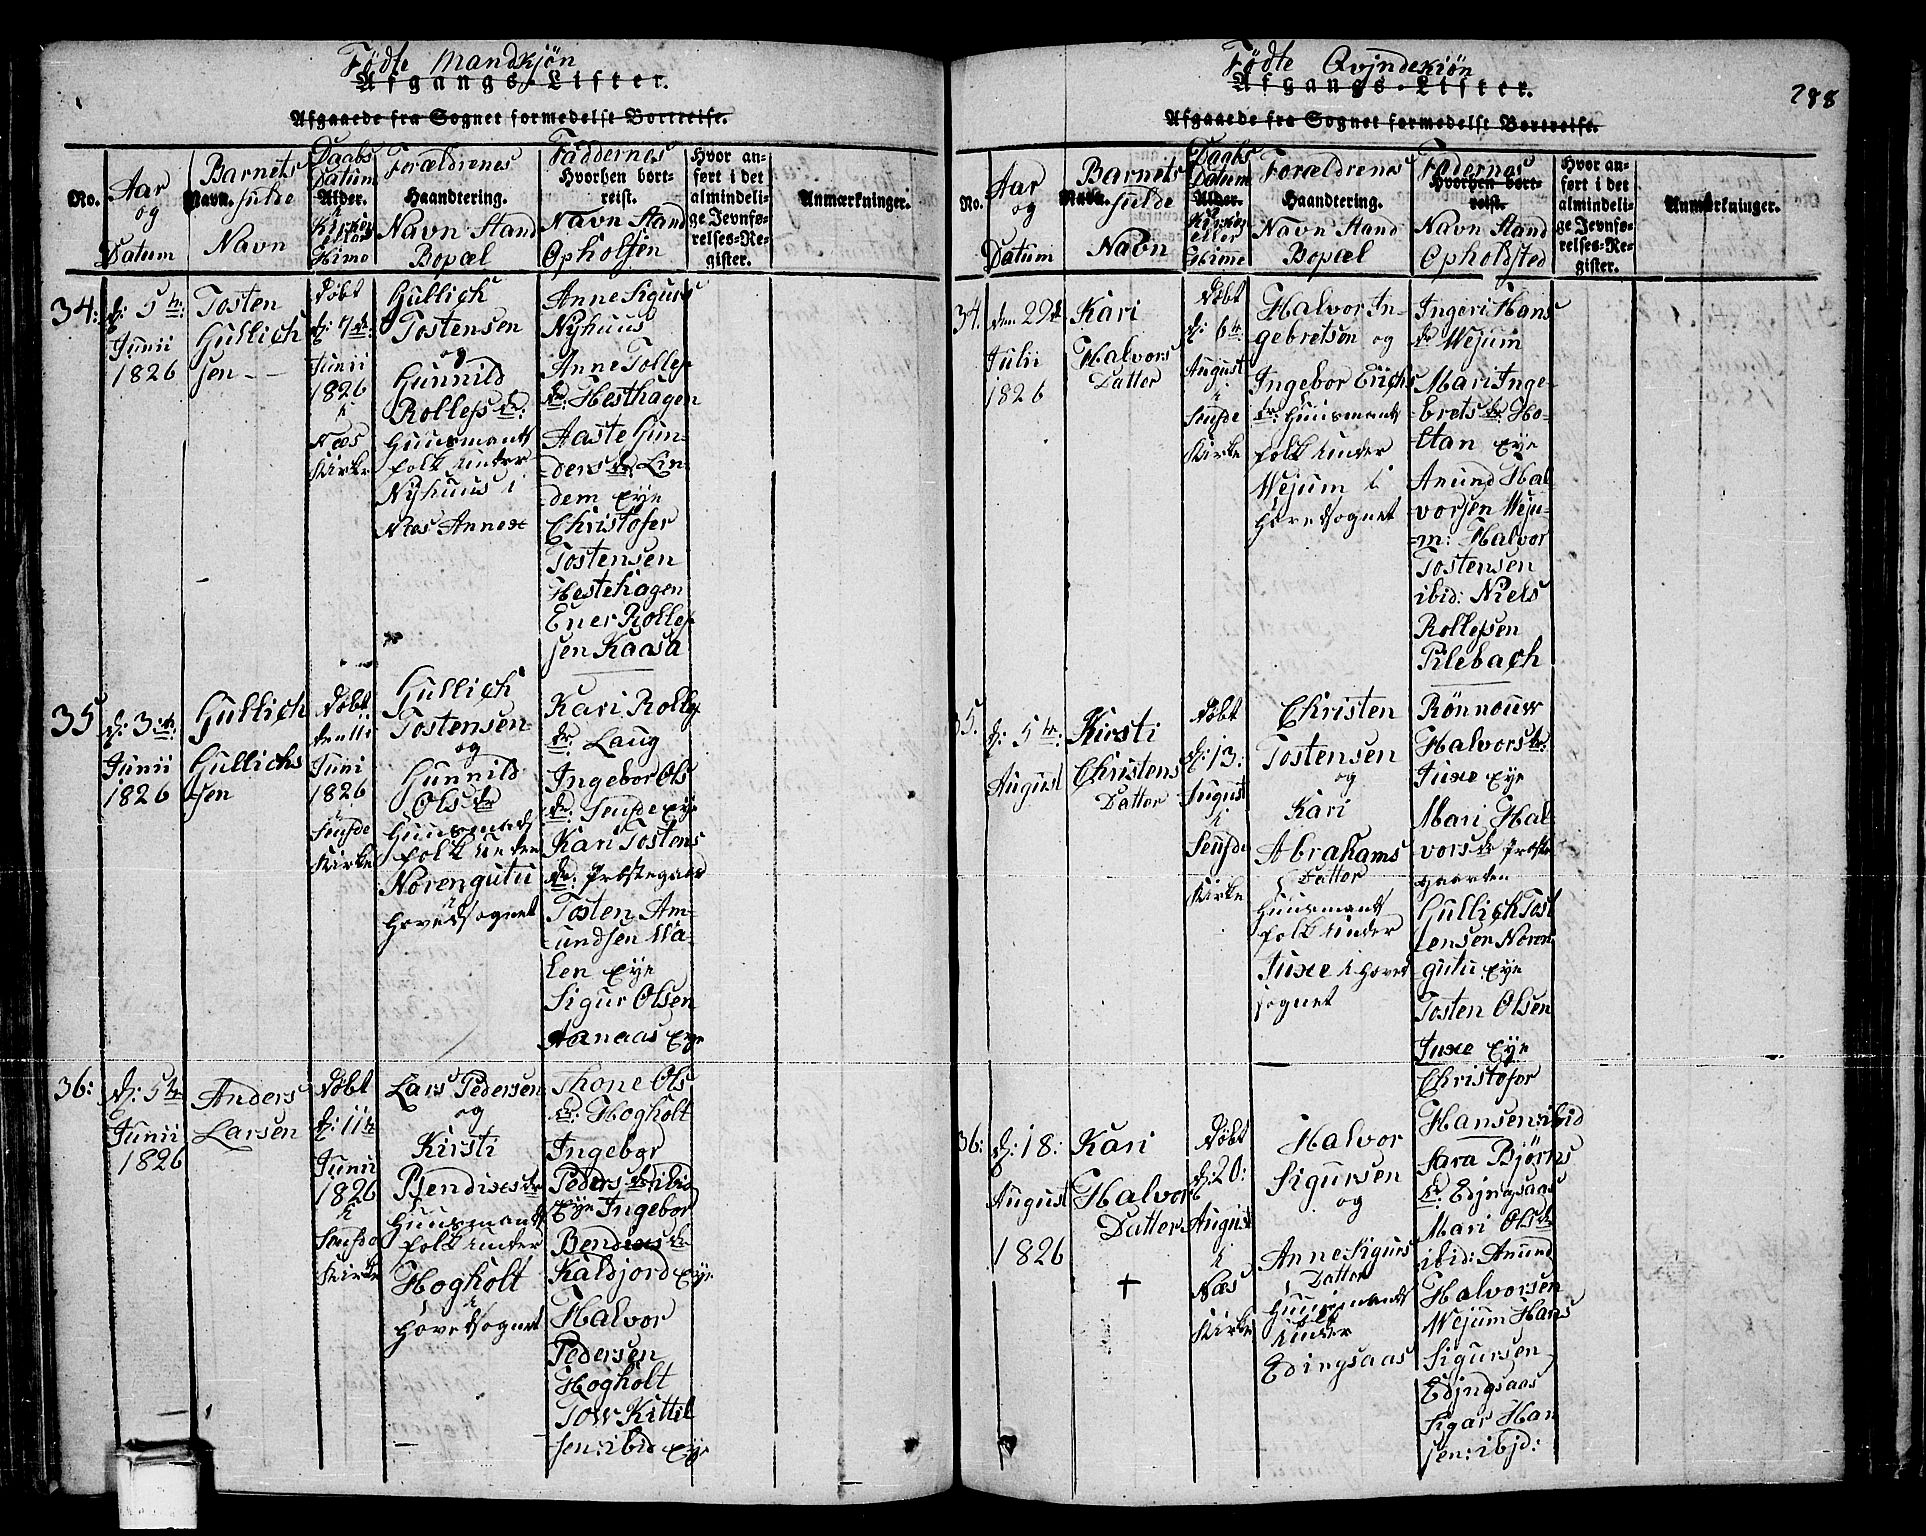 Födte Mandkjön
Afgangs-Lister.
Afgaaede fra Sognet formedelst Bortreise.
No.
Aar
og
Datum
Barnets
Navn. fulde
Navn
Daabs
Datum
Alder.
i
Kirken
eller
Hime
Forældrenes
Haandtering.
Navn Stand
Bopæl
Faddernes
Hvorhen bort-
reist.
Navn Stand
Opholsten
Hvor an-
ført i det
almindeli-
ge Jevnfø-
relses-Re-
gister.
Anmærkninger.
34:
d: 5te:
Junii
1826
Tosten
Gullich
sen
Døbt
d: 7de:
Junii
1826
i
Næs
Kirke
Gullich
Tostensen
og
Gunnild
Rollefsdr:
Huusmands
folk under
Nyhuus i
Næs Annex
Anne Sigurs
Nyhuus
Anne Tollef
dr: Hesthagen
Aaste Gun-
ders dr Lin-
dem Eye
Christofer
Tostensen
Hestehagen
Ener Rollef
sen Kaasa
35
d: 3de:
Junii
1826
Gullich
Gullichs
sen
Døbt
den 11
Juni
1826
i
Seufde
Kirke
Gullich
Tostensen
og
Gunnild
Ols dr
Huusmands
folk under
Norengutu
i
Hovedsognet
Kari Rollef
dr: Laug
Ingebor Ols
dr: Seufde Eye
Kari Tostens
dr: Præstegaar
Tosten Am-
undsen Wa-
len Eye
Sigur Olsen
Aarnaas Eye
36:
d: 5te
Junii
1826
Anders
Larsen
Døbt
d: 11te
Junii
1826
i
Seufde
Kirke
Lars Pedersen
og
Kirsti
Bendixesdr
Huusmands
folk under
Hogholt
i
Hovedsognet
Thone Ols
dr: Hogholt
Ingebor
Peders dr ibid
Eye Ingebor
Bendixes dr
Kaldjord Eye
Halvor
Pedersen
Hogholt
Tow Kittil
sen: ibid Eye
Födte Qvindekiön
288
Afgangs-Lister.
Afgaaede fra Sognet formedelst Bortreise.
No.
Aar
og
Datum
Barnets
Navn. fulde
Navn
Daabs
Datum
Alder.
i
Kirken
eller
Hime
Forældrenes
Haandtering.
Navn Stand
Bopæl
Fadernes
Hvorhen bort-
reist.
Navn Stand
Opholdsted
Hvor an-
ført i det
almindeli-
ge Jevnfø-
relses-Re-
gister.
Anmærkninger.
34.
den 29de
Julii
1826
Kari
Halvors
Datter
Døbt
d: 6te
August
i
Seufde
Kirke
Halvor In-
gebretsen og
Ingebor Erichs
dr: Huusmands
folk under
Wejum i
Hovedsognet
Ingeri Hans
dr Wejum
Mari Inge-
brets dr: Ho-
ltan Eye
Anund Hal
vorsen Weju-
m: Halvor
Tostensen
ibid: Niels
Rollefsen
Pilebach
35.
d: 5te:
August
Kirsti
Christens
Datter
Døbt
d: 13:
August
i
Seufde
Kirke
Christen
Tostensen
og
Kari
Abrahams
Datter
Huusmands
folk under
Juxe i Hoved
sognet
Rönnouw
Halvorsdr:
Juxe Eye
Mari Hal
vors dr Præste
gaarden
Gullich Tost
ensen Noren
gutu Eye
Tosten Olsen
Juxe Eye
Christofer
Hansen: ibid
36:
d: 18:
August
1826
Kari
Halvor
Datter
+
Døbt
d: 20:
August
i
Næs
Kirke
Halvor
Sigursen
og
Anne Sigurs
Datter
Huusmands
folk
under
Edingsaas
Sara Björns
dr: Edjngsaas
Mari Olsdr
ibid: Anund
Halvorsen
Wejum Hans
Sigursen
Edjngsaas
Sigar Han
sen: ibjd: